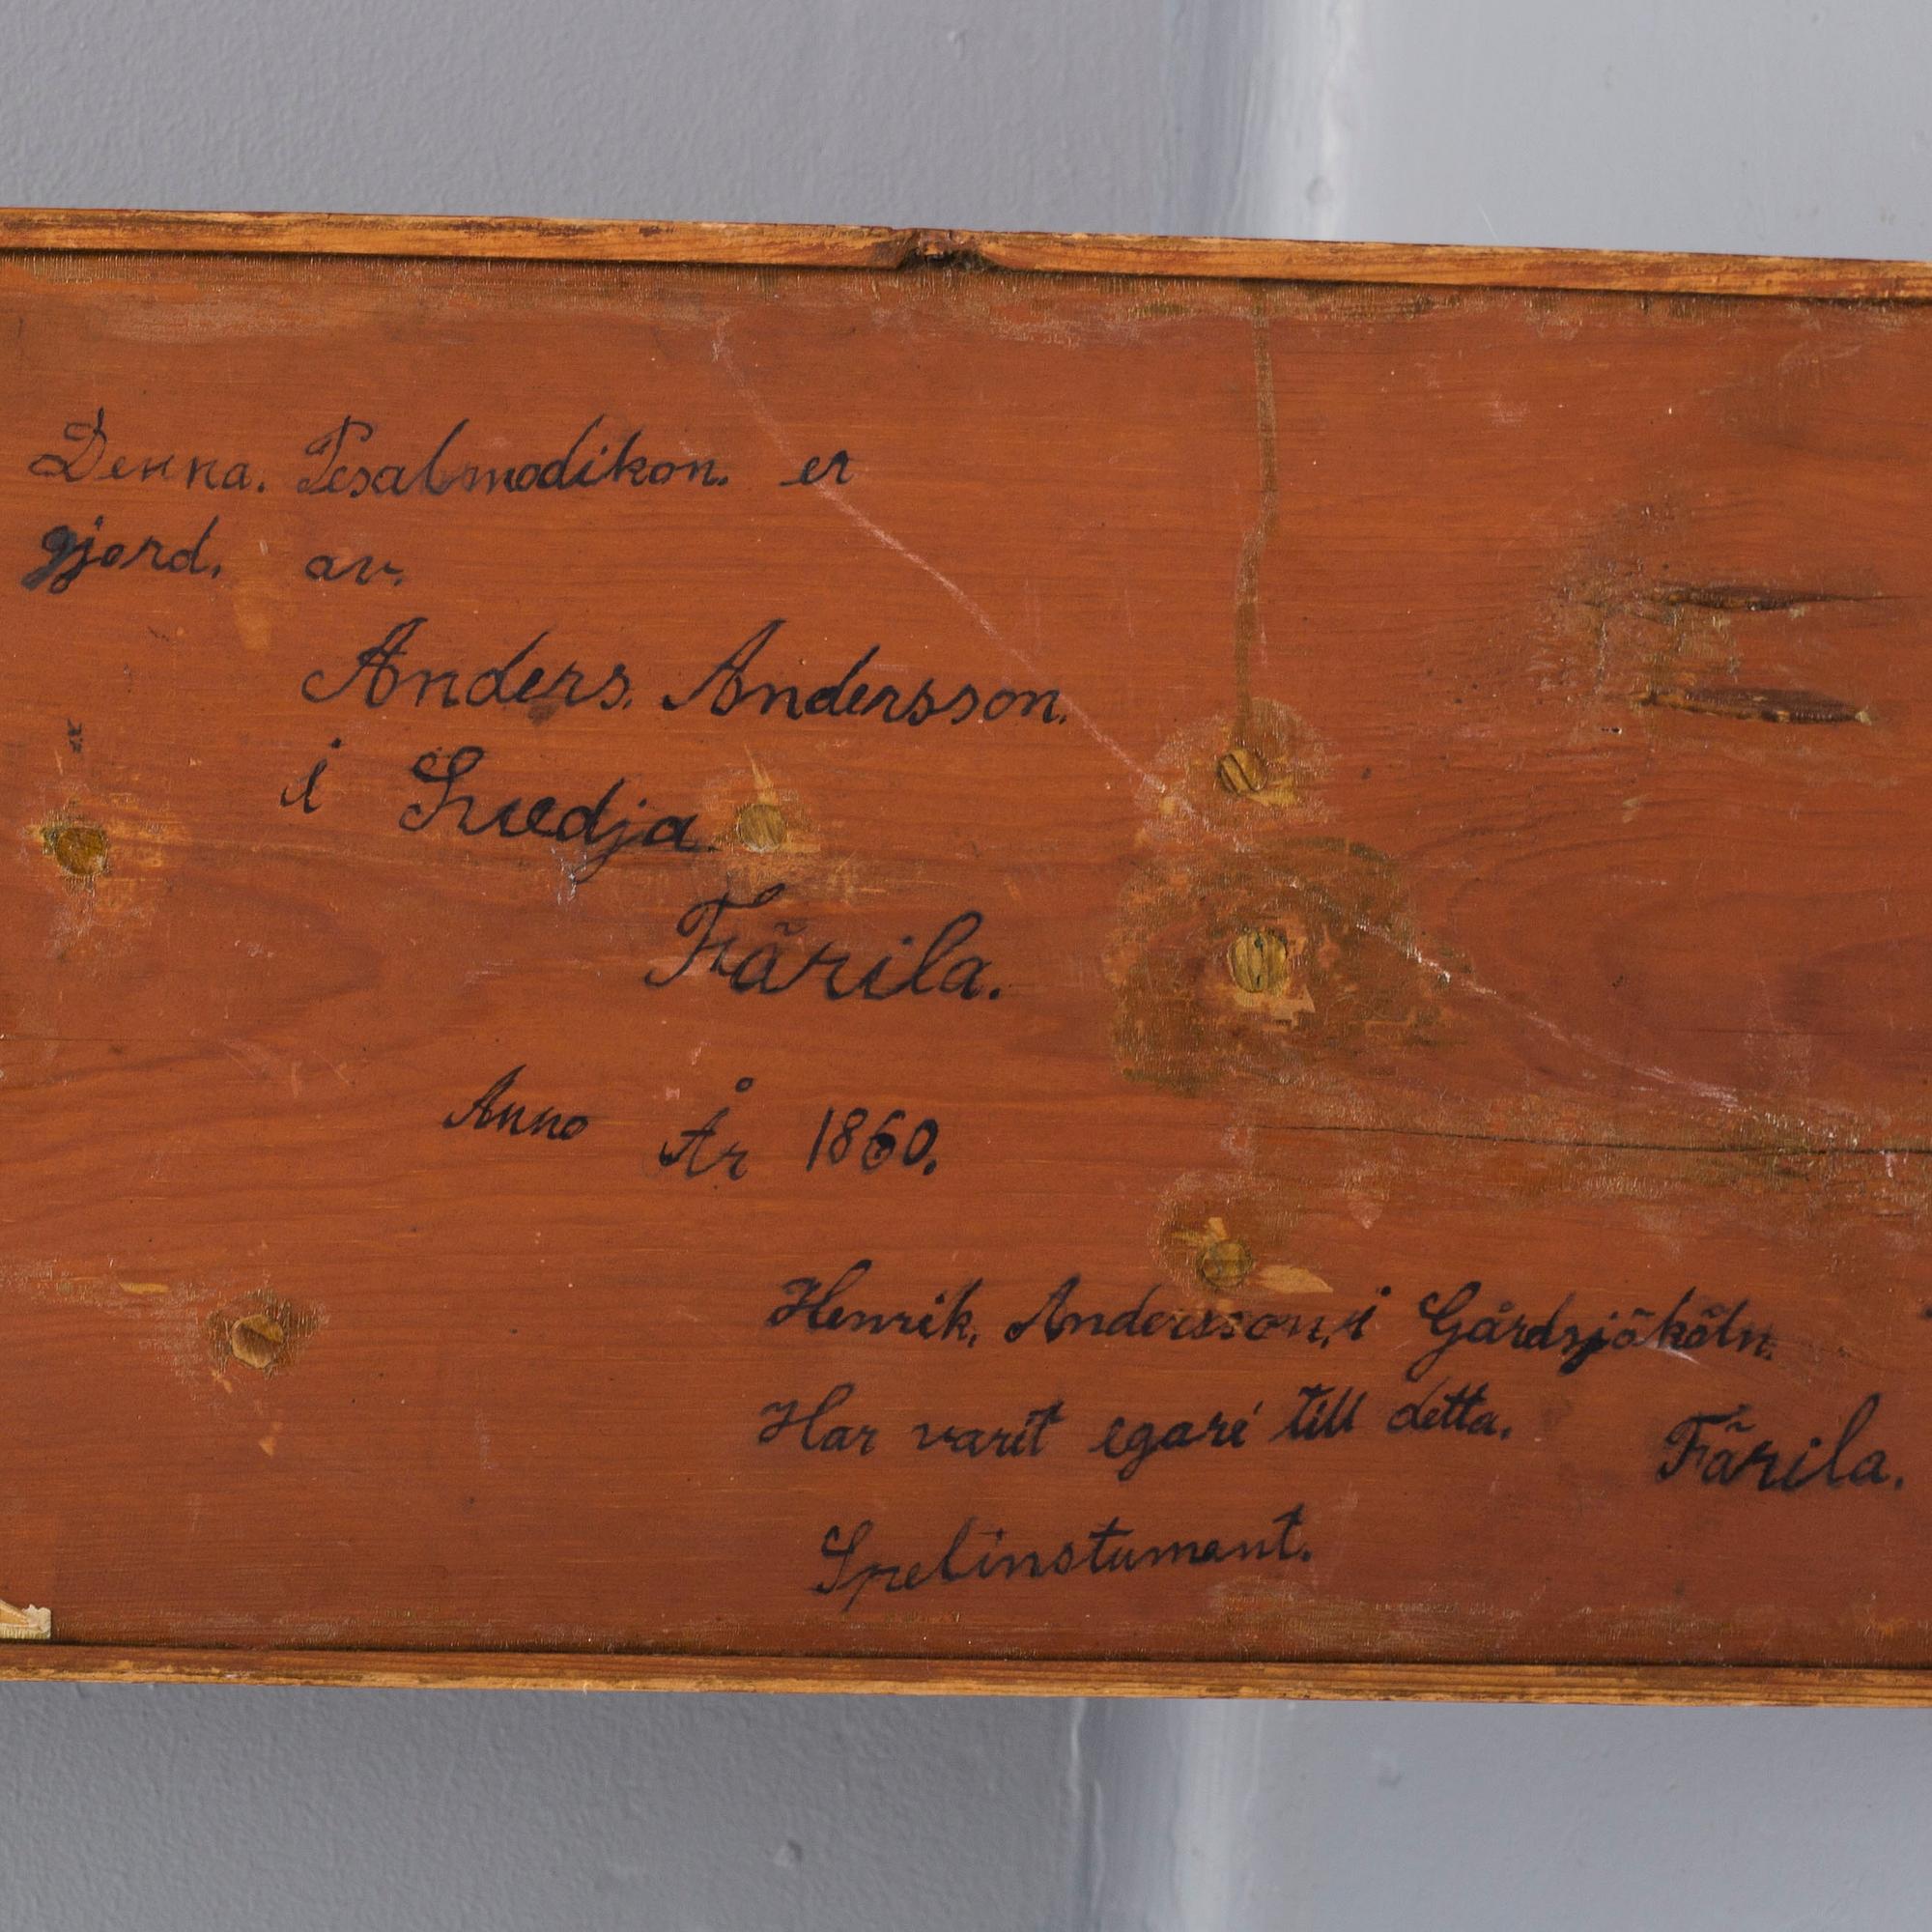 Denna. Pesalmodikon. er
gjord. av.
Anders. Andersson.
i Svedja.
Färila.
Anno År 1860.
Henrik, Andersson, i Gårdsjököln.
Har varit egare till detta. Färila.
Spelinstument.